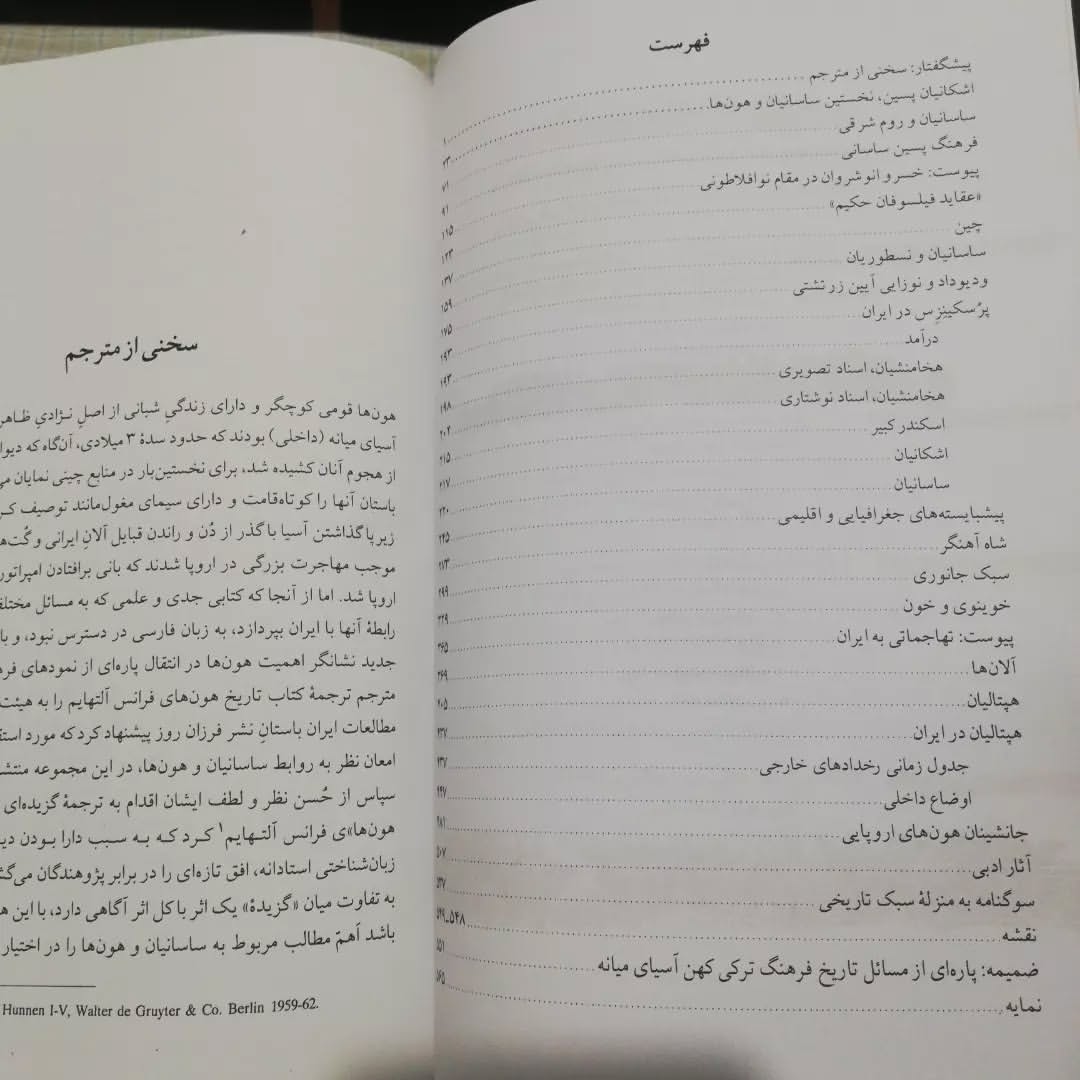 فهرست
پیشگفتار: سخنی از مترجم ۱
اشکانیان پسین، نخستین ساسانیان و هون‌ها
ساسانیان و روم شرقی ۷۱
فرهنگ پسین ساسانی ۹۱
پیوست: خسرو انوشروان در مقام نوافلاطونی ۱۱۵
«عقاید فیلسوفان حکیم» ۱۲۳
چین ۱۳۷
ساسانیان و نسطوریان ۱۵۹
ودیوداد و نوزایی آیین زرتشتی ۱۷۵
پرُسکینزِس در ایران ۱۹۳
درآمد ۱۹۳
هخامنشیان، اسناد تصویری ۱۹۸
هخامنشیان، اسناد نوشتاری ۲۰۴
اسکندر کبیر ۲۱۵
اشکانیان ۲۱۷
ساسانیان ۲۲۰
پیشبایسته‌های جغرافیایی و اقلیمی ۲۴۵
شاه آهنگر ۲۸۳
سبک جانوری ۲۹۹
خوینوی و خون ۳۲۹
پیوست: تهاجماتی به ایران ۳۶۵
آلان‌ها ۳۶۹
هپتالیان ۴۰۵
هپتالیان در ایران ۴۳۷
جدول زمانی رخدادهای خارجی ۴۳۷
اوضاع داخلی ۴۴۷
جانشینان هون‌های اروپایی ۴۸۱
آثار ادبی ۵۰۷
سوگنامه به منزلهٔ سبک تاریخی ۵۳۷
نقشه ۵۴۸-۵۴۹
ضمیمه: پاره‌ای از مسائل تاریخ فرهنگ ترکی کهن آسیای میانه ۵۵۱
نمایه ۵۶۵
سخنی از مترجم
هون‌ها قومی کوچگر و دارای زندگیِ شبانی از اصلِ نژادیِ ظاهر
آسیای میانه (داخلی) بودند که حدود سدهٔ ۳ میلادی، آن‌گاه که دیوا
از هجوم آنان کشیده شد، برای نخستین‌بار در منابع چینی نمایان می
باستان آنها را کوتاه‌قامت و دارای سیمای مغول‌مانند توصیف کر
زیر پا گذاشتن آسیا با گذر از دُن و راندن قبایل آلانِ ایرانی و گُت‌ه
موجب مهاجرت بزرگی در اروپا شدند که بانی برافتادن امپراتور
اروپا شد. اما از آنجا که کتابی جدی و علمی که به مسائل مختلف
رابطهٔ آنها با ایران بپردازد، به زبان فارسی در دسترس نبود، و با
جدید نشانگر اهمیت هون‌ها در انتقال پاره‌ای از نمودهای فره
مترجم ترجمهٔ کتاب تاریخ هون‌های فرانس آلتهایم را به هیئت
مطالعات ایران باستانِ نشر فرزان روز پیشنهاد کرد که مورد استق
امعان نظر به روابط ساسانیان و هون‌ها، در این مجموعه منتشر
سپاس از حُسن نظر و لطف ایشان اقدام به ترجمهٔ گزیده‌ای
هون‌ها»ی فرانس آلتهایم۱ کرد که به سبب دارا بودن دید
زبان‌شناختی استادانه، افق تازه‌ای را در برابر پژوهندگان می‌گش
به تفاوت میان «گزیدهٔ» یک اثر با کل اثر آگاهی دارد، با این ه
باشد اَهمّ مطالب مربوط به ساسانیان و هون‌ها را در اختیار
Hunnen I-V, Walter de Gruyter & Co. Berlin 1959-62.